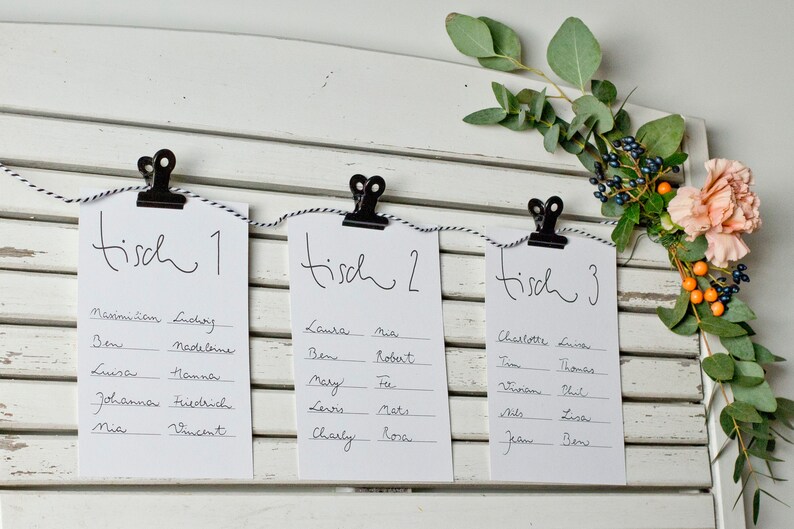 tisch 1
Maximilian Ludwig
Ben Madeleine
Luisa Hanna
Johanna Friedrich
Mia Vincent
tisch 2
Laura Mia
Ben Robert
Mary Fee
Lewis Mats
Charly Rosa
tisch 3
Charlotte Luisa
Tim Thomas
Vivian Phil
Nils Lisa
Jean Ben